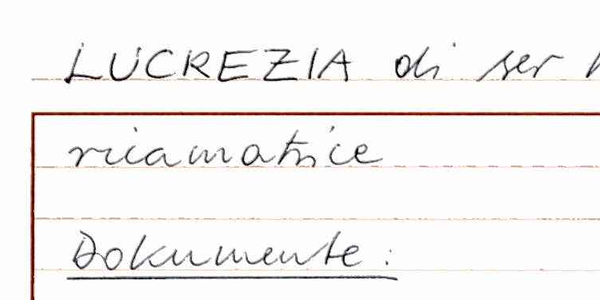 LUCREZIA di ser
ricamatrice
Dokumente: